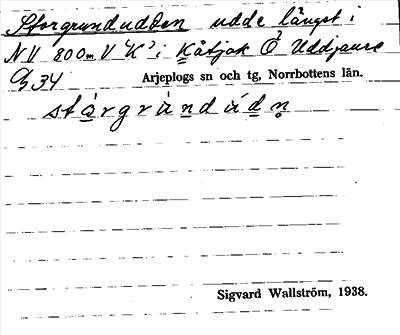 Storgrundudden udde längst i
NV 800m V "K" i Kåtjok Ö Uddjaure
Cg 34
Arjeplogs sn och tg, Norrbottens län.
stårgrùndúdn̥
Sigvard Wallström, 1938.